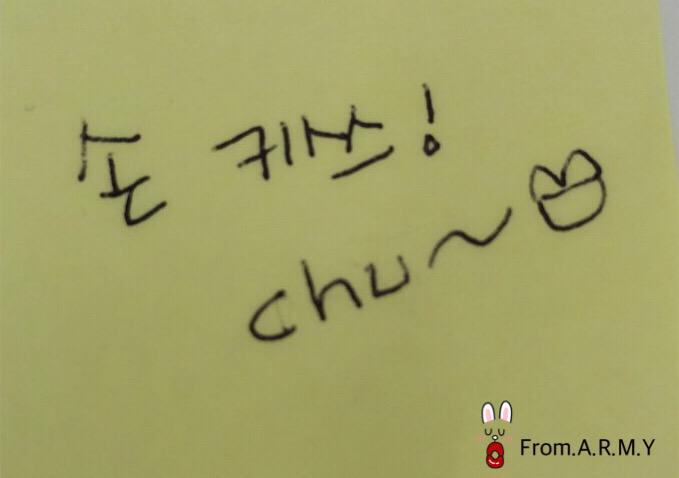 손 키스!
chu~
From.A.R.M.Y